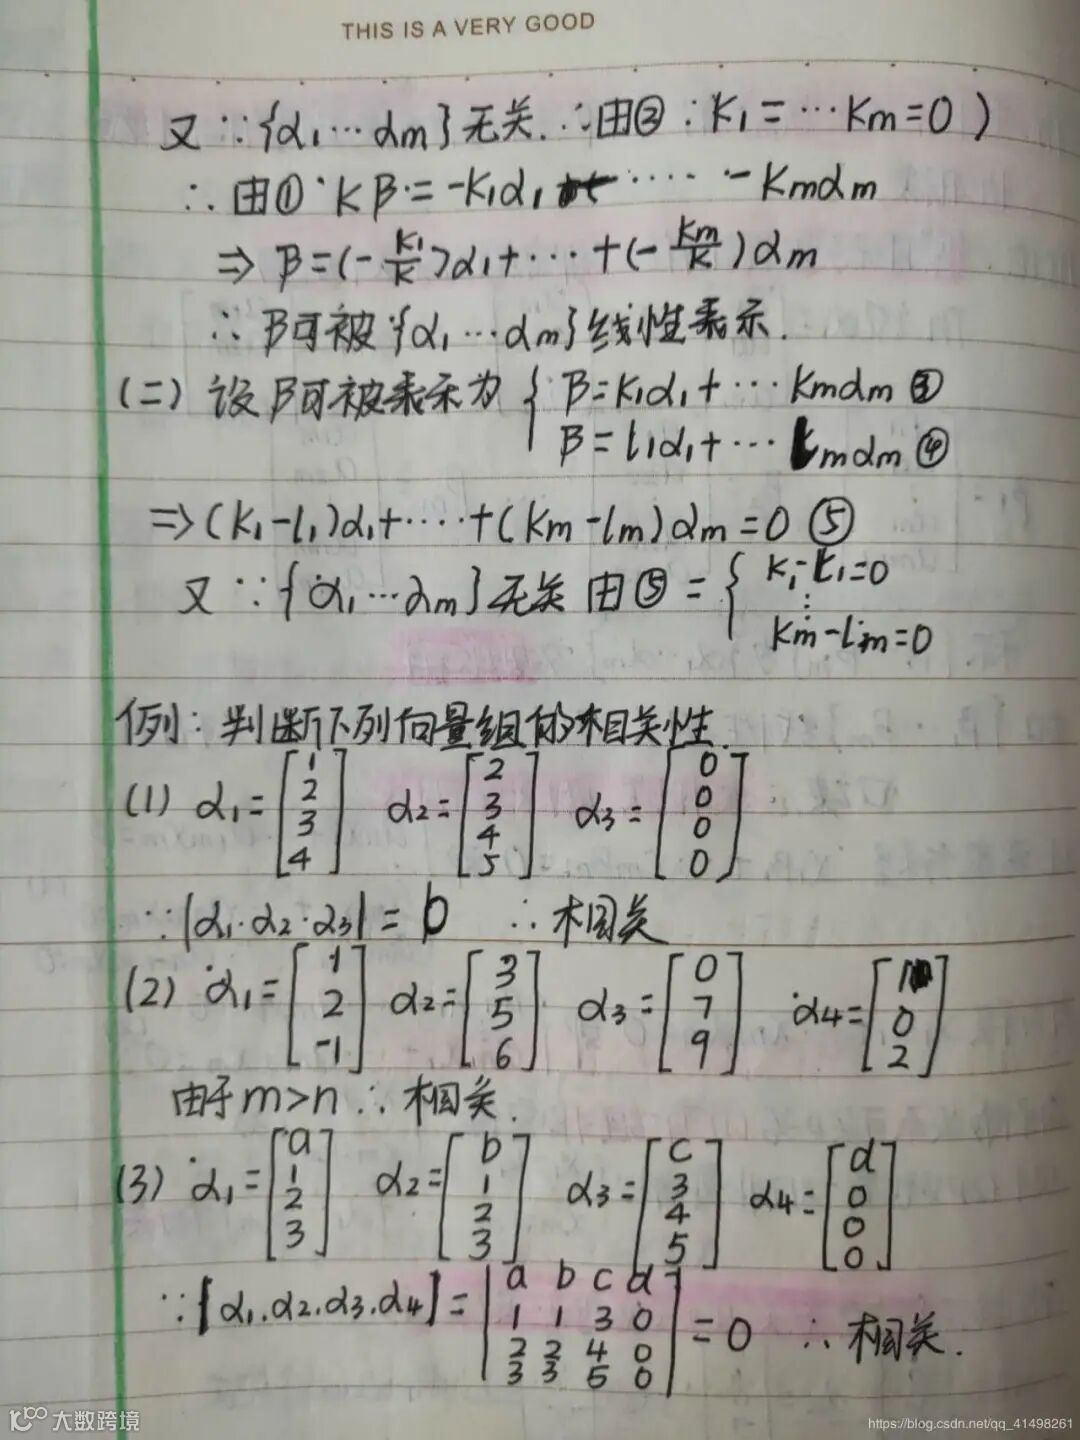 THIS IS A VERY GOOD
又∵{α₁…αm}无关.∴由②:K₁=…Km=0)
∴由①·Kβ=-K₁α₁ ····· -Kmαm
⇒β=(-K₁/K)α₁+···+(-Km/K)αm
∴β可被{α₁…αm}线性表示.
(二)设β可被表示为{β=K₁α₁+…Kmαm③
β=l₁α₁+…lmαm④
⇒(K₁-l₁)α₁+····+(Km-lm)αm=0⑤
又∵{α₁…αm}无关由⑤={K₁-l₁=0
⋮
Km-lm=0
例:判断下列向量组的相关性.
(1) α₁=[1 2 3 4] α₂=[2 3 4 5] α₃=[0 0 0 0]
∵|α₁·α₂·α₃|=0 ∴相关
(2) α₁=[1 2 -1] α₂=[3 5 6] α₃=[0 7 9] α₄=[ 0 2]
由于m>n∴相关.
(3) α₁=[a 1 2 3] α₂=[b 1 2 3] α₃=[c 3 4 5] α₄=[d 0 0 0]
∵[α₁.α₂.α₃.α₄]=|a b c d
1 1 3 0
2 2 4 0
3 3 5 0|=0 ∴相关.
大数跨境
https://blog.csdn.net/qq_41498261